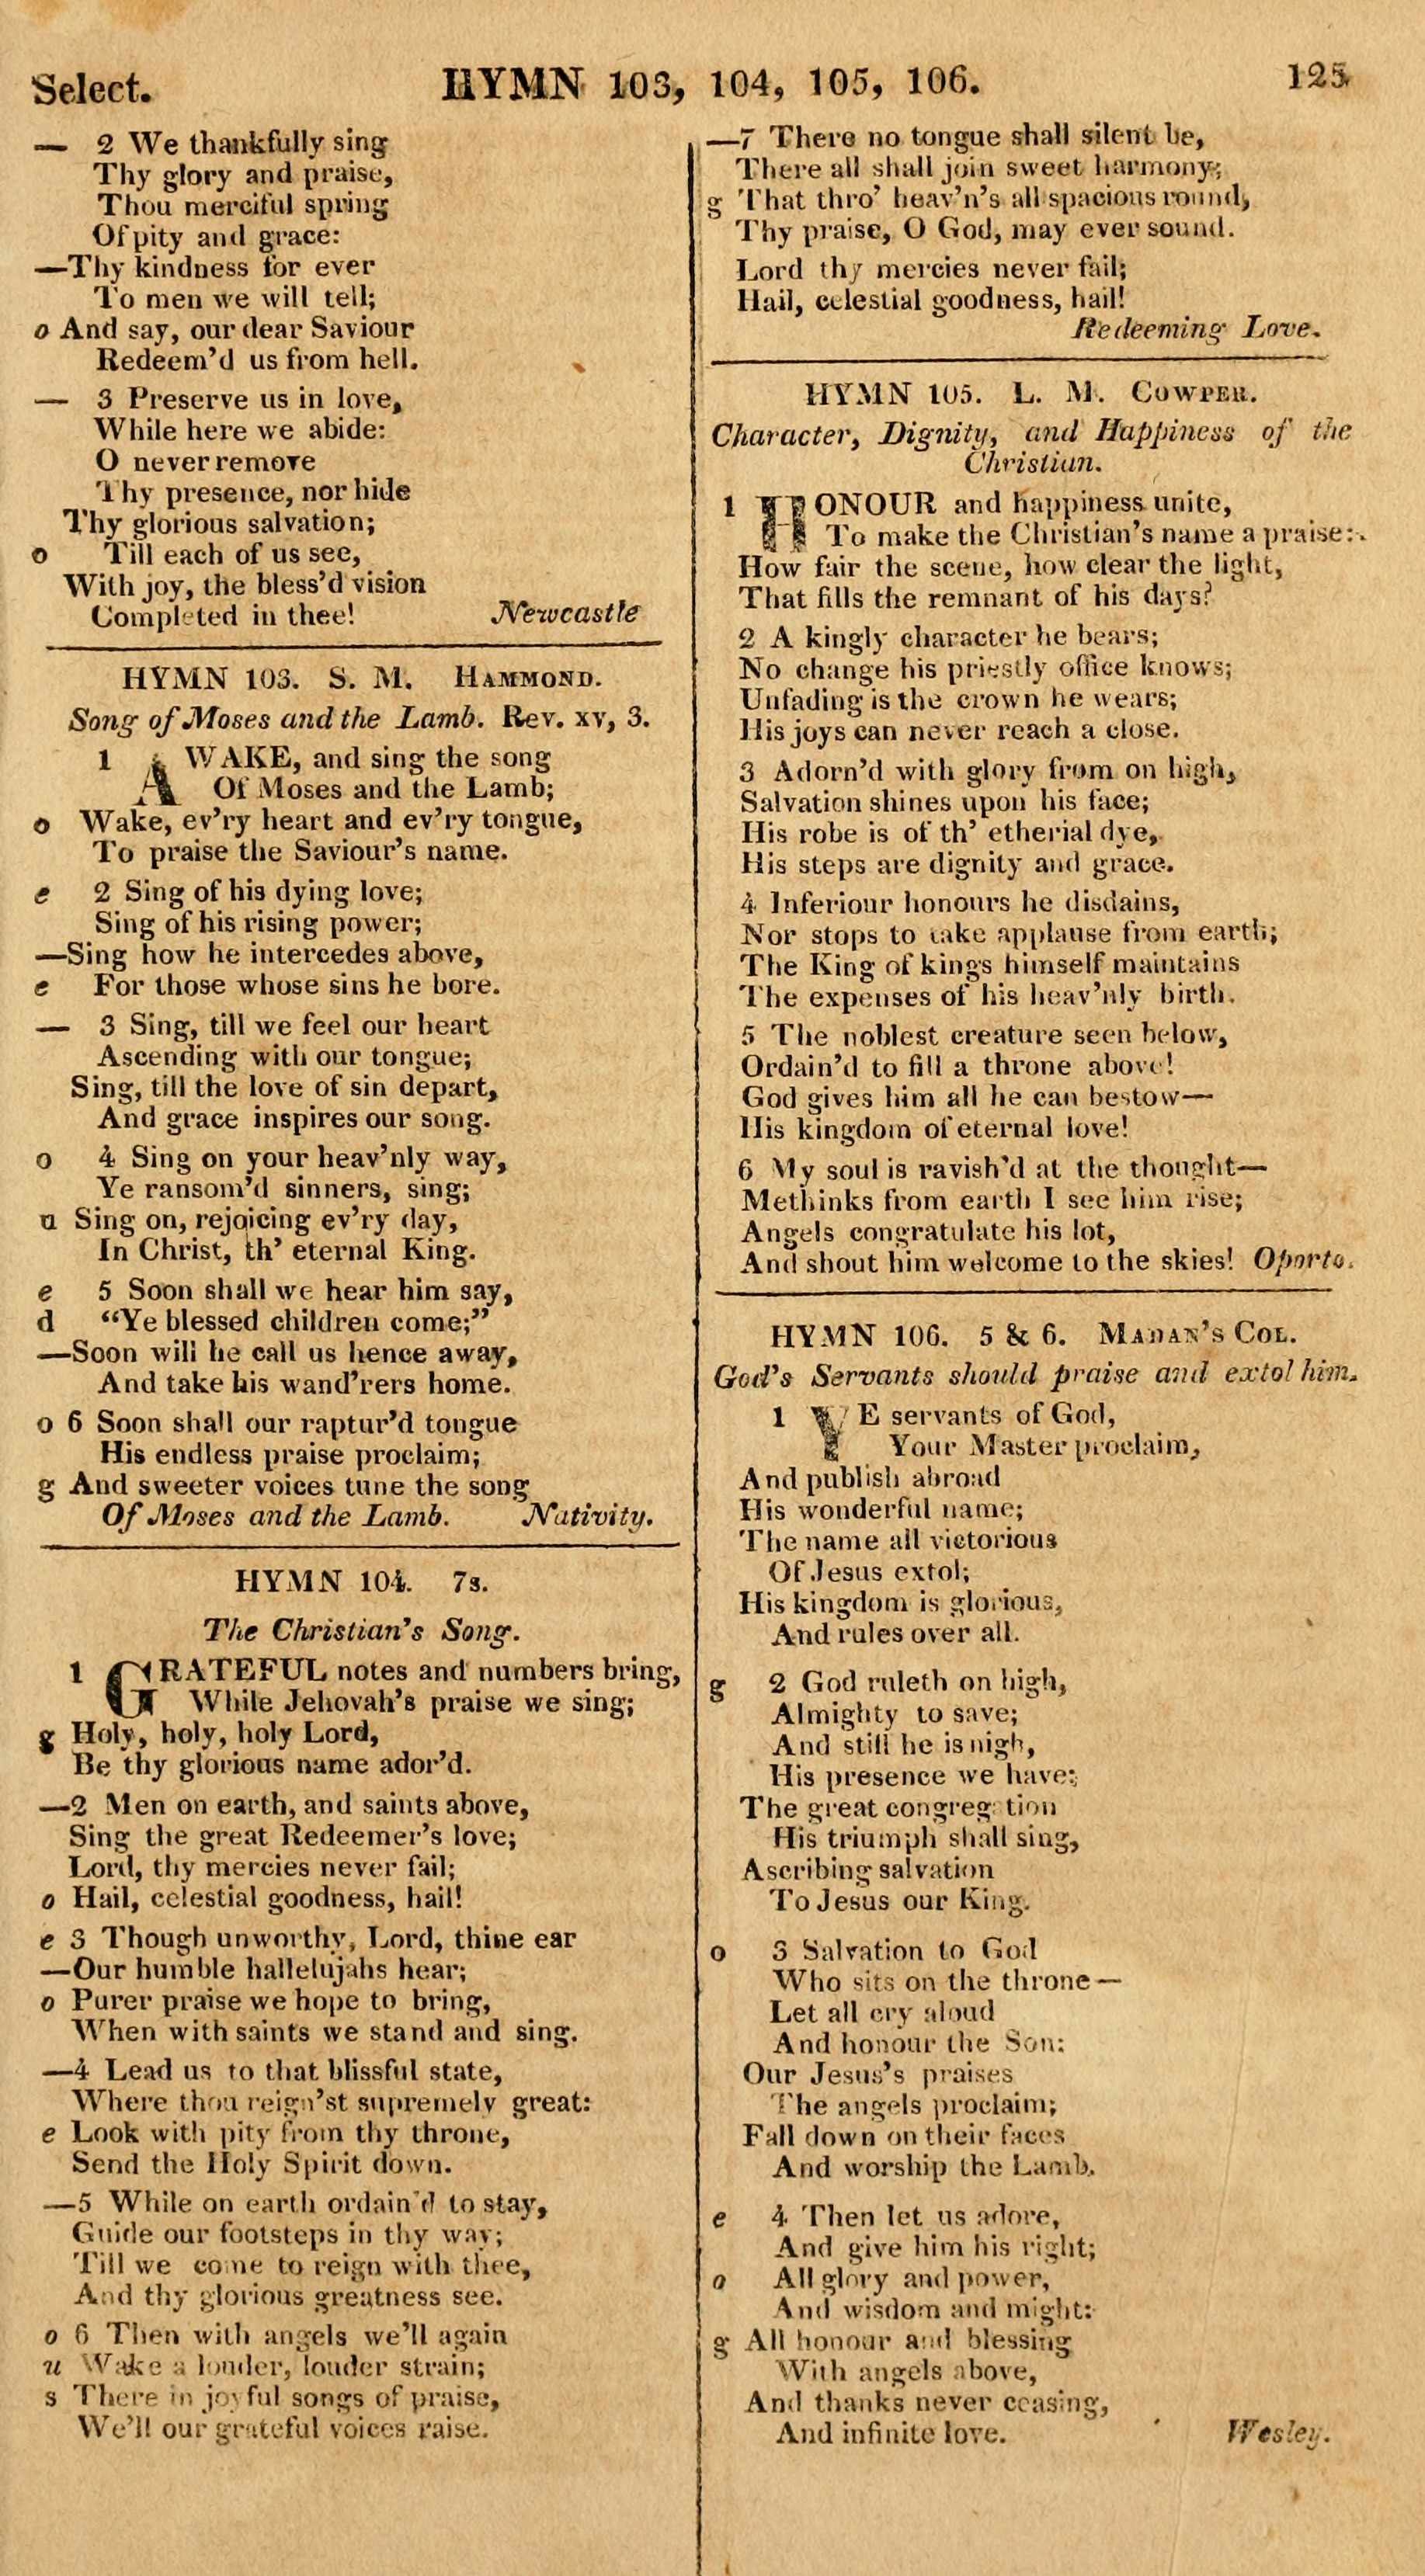 Select.
HYMN 103, 104, 105, 106.
125
— 2 We thankfully sing
Thy glory and praise,
Thou merciful spring
Of pity and grace:
—Thy kindness for ever
To men we will tell;
o And say, our dear Saviour
Redeem'd us from hell.
— 3 Preserve us in love,
While here we abide:
O never remove
Thy presence, nor hide
Thy glorious salvation;
o Till each of us see,
With joy, the bless'd vision
Completed in thee! Newcastle
HYMN 103. S. M. HAMMOND.
Song of Moses and the Lamb. Rev. xv, 3.
1 AWAKE, and sing the song
Of Moses and the Lamb;
o Wake, ev'ry heart and ev'ry tongue,
To praise the Saviour's name.
e 2 Sing of his dying love;
Sing of his rising power;
—Sing how he intercedes above,
e For those whose sins he bore.
— 3 Sing, till we feel our heart
Ascending with our tongue;
Sing, till the love of sin depart,
And grace inspires our song.
o 4 Sing on your heav'nly way,
Ye ransom'd sinners, sing;
u Sing on, rejoicing ev'ry day,
In Christ, th' eternal King.
e 5 Soon shall we hear him say,
d "Ye blessed children come;"
—Soon will he call us hence away,
And take his wand'rers home.
o 6 Soon shall our raptur'd tongue
His endless praise proclaim;
g And sweeter voices tune the song
Of Moses and the Lamb. Nativity.
HYMN 104. 7s.
The Christian's Song.
1 GRATEFUL notes and numbers bring,
While Jehovah's praise we sing;
g Holy, holy, holy Lord,
Be thy glorious name ador'd.
—2 Men on earth, and saints above,
Sing the great Redeemer's love;
Lord, thy mercies never fail;
o Hail, celestial goodness, hail!
e 3 Though unworthy, Lord, thine ear
—Our humble hallelujahs hear;
o Purer praise we hope to bring,
When with saints we stand and sing.
—4 Lead us to that blissful state,
Where thou reign'st supremely great:
e Look with pity from thy throne,
Send the Holy Spirit down.
—5 While on earth ordain'd to stay,
Guide our footsteps in thy way;
Till we come to reign with thee,
And thy glorious greatness see.
o 6 Then with angels we'll again
u Wake a louder, louder strain;
s There in joyful songs of praise,
We'll our grateful voices raise.
—7 There no tongue shall silent be,
There all shall join sweet harmony;
g That thro' heav'n's all spacious round,
Thy praise, O God, may ever sound.
Lord thy mercies never fail;
Hail, celestial goodness, hail!
Redeeming Love.
HYMN 105. L. M. COWPER.
Character, Dignity, and Happiness of the
Christian.
1 HONOUR and happiness unite,
To make the Christian's name a praise:
How fair the scene, how clear the light,
That fills the remnant of his days?
2 A kingly character he bears;
No change his priestly office knows;
Unfading is the crown he wears;
His joys can never reach a close.
3 Adorn'd with glory from on high,
Salvation shines upon his face;
His robe is of th' etherial dye,
His steps are dignity and grace.
4 Inferiour honours he disdains,
Nor stops to take applause from earth;
The King of kings himself maintains
The expenses of his heav'nly birth.
5 The noblest creature seen below,
Ordain'd to fill a throne above!
God gives him all he can bestow—
His kingdom of eternal love!
6 My soul is ravish'd at the thought—
Methinks from earth I see him rise;
Angels congratulate his lot,
And shout him welcome to the skies! Oporto.
HYMN 106. 5 & 6. MADAN'S COL.
God's Servants should praise and extol him.
1 YE servants of God,
Your Master proclaim,
And publish abroad
His wonderful name;
The name all victorious
Of Jesus extol;
His kingdom is glorious,
And rules over all.
g 2 God ruleth on high,
Almighty to save;
And still he is nigh,
His presence we have:
The great congregation
His triumph shall sing,
Ascribing salvation
To Jesus our King.
o 3 Salvation to God
Who sits on the throne—
Let all cry aloud
And honour the Son:
Our Jesus's praises
The angels proclaim;
Fall down on their faces
And worship the Lamb.
e 4 Then let us adore,
And give him his right;
o All glory and power,
And wisdom and might:
g All honour and blessing
With angels above,
And thanks never ceasing,
And infinite love. Wesley.